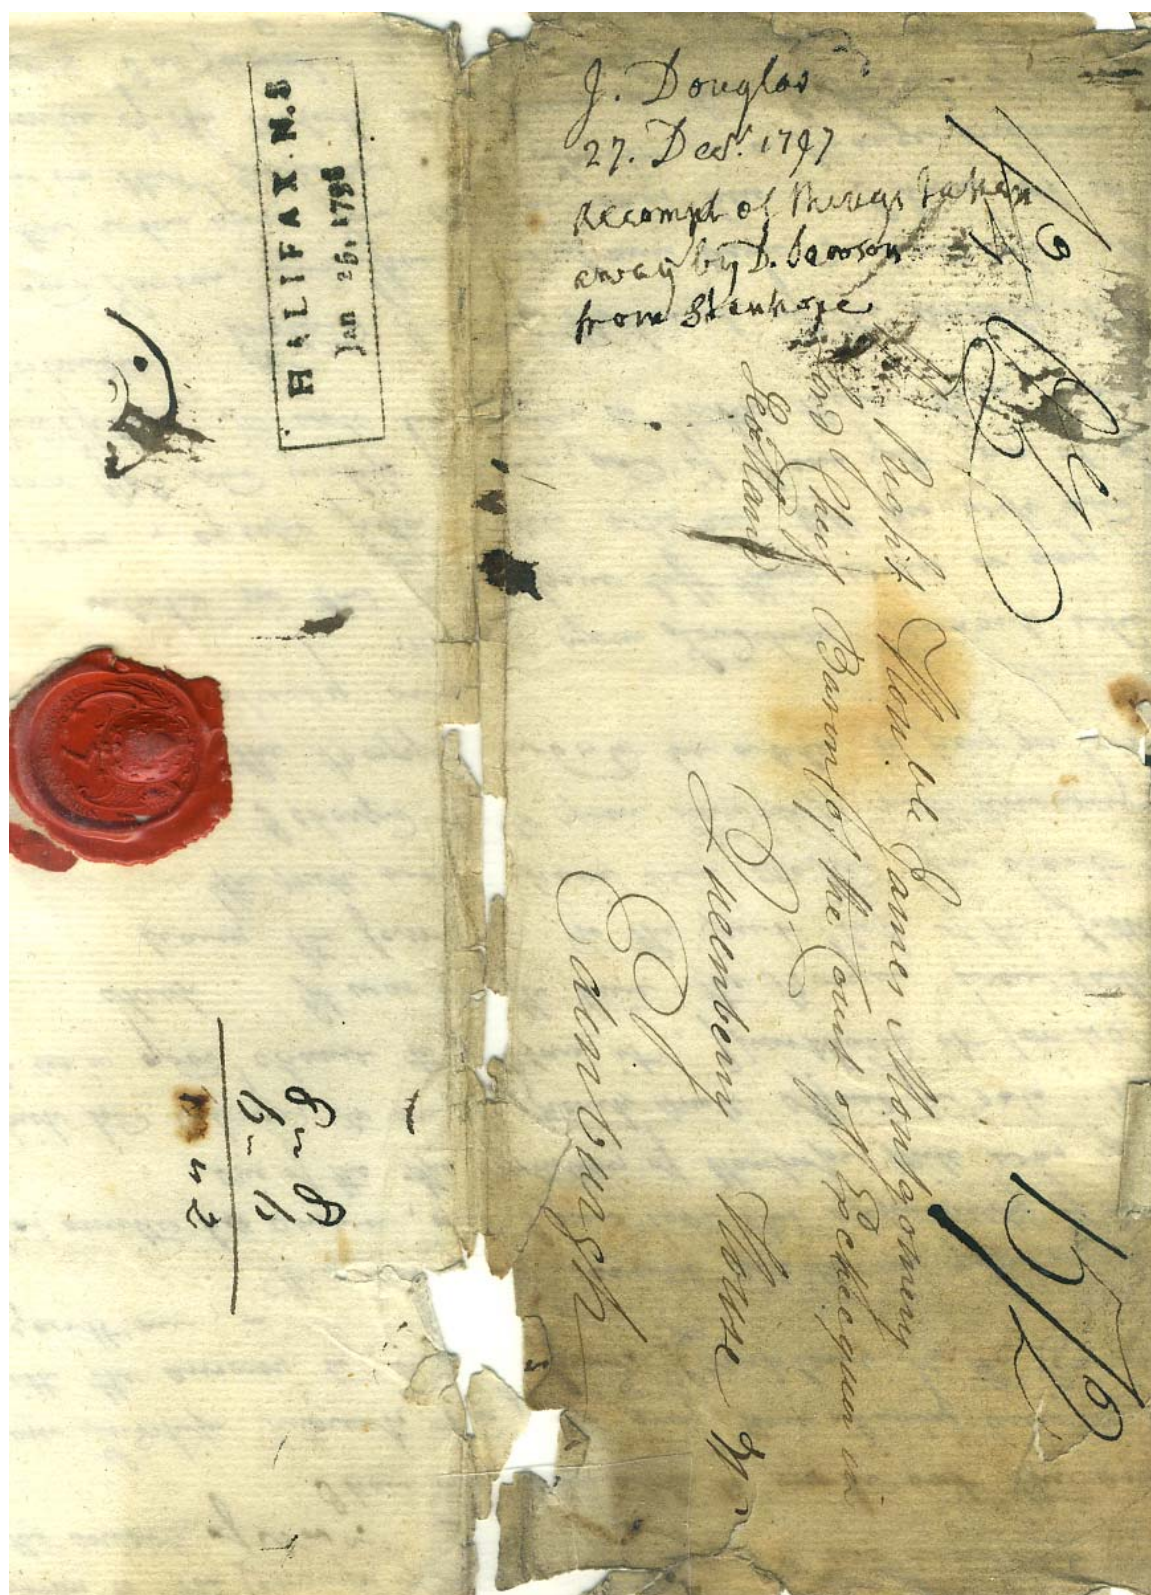 HALIFAX. N.S
Jan 26, 1798
J. Douglas
27. Decr. 1797
Accompt of things taken
away by D. Lawson
from Stanhope
Right Honble James Montgomery
Lord Chief Baron of the Court of Exchequer in
Scotland
Queensberry House
Edinburgh
8 " 8
6 " 6
" 2